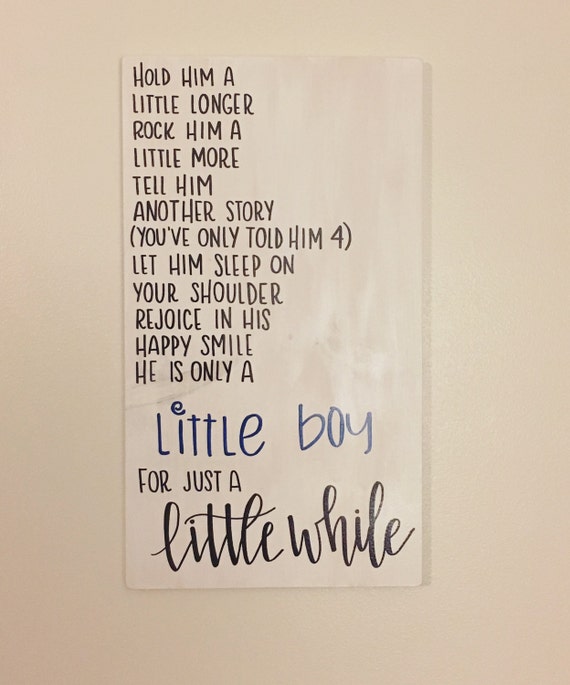 HOLD HIM A
LITTLE LONGER
ROCK HIM A
LITTLE MORE
TELL HIM
ANOTHER STORY
(YOU'VE ONLY TOLD HIM 4)
LET HIM SLEEP ON
YOUR SHOULDER
REJOICE IN HIS
HAPPY SMILE
HE IS ONLY A
LiTTLE boy
FOR JUST A
little while